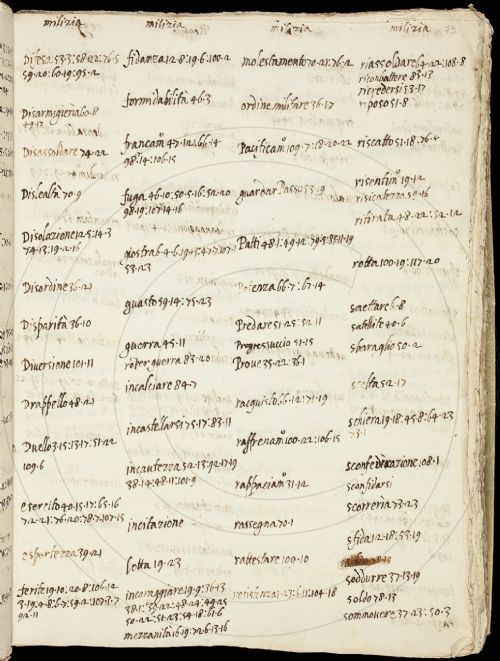 milizia
Difesa 53·3·58·22·76·5
59·20·60·19·95·2
Disarmigieria 60·8
Disassoldare 74·22
Dislealtà 70·9
Disolazione 12·5·14·3
74·13·19·2·16
Disordine 36·21
Disparità 36·10
Diversione 101·11
Drappello 48·21
Duello 3·15·13·17·51·22
109·6
esercito 40·15·17·65·16
7·2·21·76·20·78·7·107·15
esportezza 39·21
ferite 19·10·20·8·106·12
92·11
milizia
fidanza 12·8·19·6·100·2
formidabilità 46·3
francam.º 47·12·66·14
98·14·106·15
fuga 46·10·50·5·16·52·20
98·19·107·14·16
giostra 6·4·6·19·15·47·7·107·1
53·23
guasto 59·14·75·23
guerra 45·11
roter guerra 83·20
incalciare 84·7
incastellarsi 75·17·83·11
incautezza 52·13·92·17·19
38·14·48·11·101·9
incitazione
Lotta 19·23
incoraggiare 19·9·36·13
38·1·39·22·48·24·49·25
50·22·51·23·54·18·61·6
mezzanità 16·19·72·6·13·16
milizia
molestamento 70·21·76·2
ordine militare 36·17
Pacificam.º 109·7·18·20·22
guardar Passo 53·19
Patti 48·1·49·12·79·5·85·11·19
Potenza 66·7·67·14
Predare 51·25·52·11
Progressuccio 51·15
Prove 35·22·36·1
racquisto 66·12·71·19
raffrenam.º 100·22·106·15
rappaciam.º 31·12
rassegna 70·1
rattestare 109·10
resistenza 1·23·6·11·104·18
milizia
73
riassoldare 64·22·108·8
riconbattere 83·13
ricredersi 53·17
riposo 51·8
riscatto 51·18·76·4
risentim.º 19·12
risicatezza 59·16
ritirata 48·22·52·12
rotta 100·19·117·20
saettare 6·8
satellite 40·6
sbaraglio 50·2
scelta 52·17
schiera 19·18·45·8·64·23
73·1
sconfederazione 108·1
sconfidarsi
scorreria 73·23
sfida 12·18·53·19
soddurre 37·13·19
soldo 78·13
sommovere 37·23·50·3